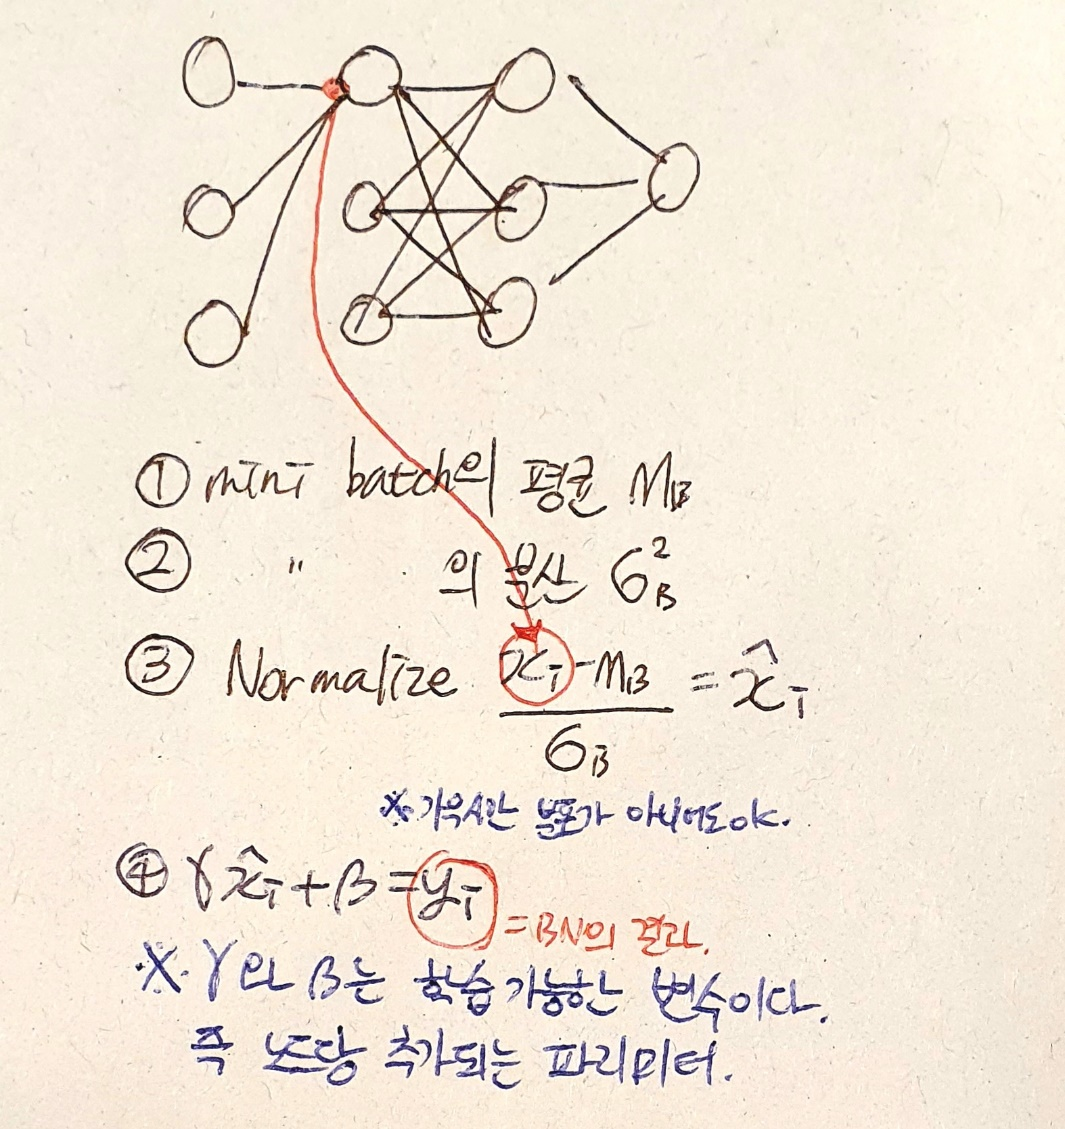 ① mini batch의 평균 M_B
② 〃 의 분산 σ²_B
③ Normalize (x_i - M_B) / σ_B = x̂_i
※ 가우시안 분포가 아니어도 ok.
④ γx̂_i + β = y_i = BN의 결과.
※. γ와 β는 학습가능한 변수이다.
즉 노드당 추가되는 파라미터.